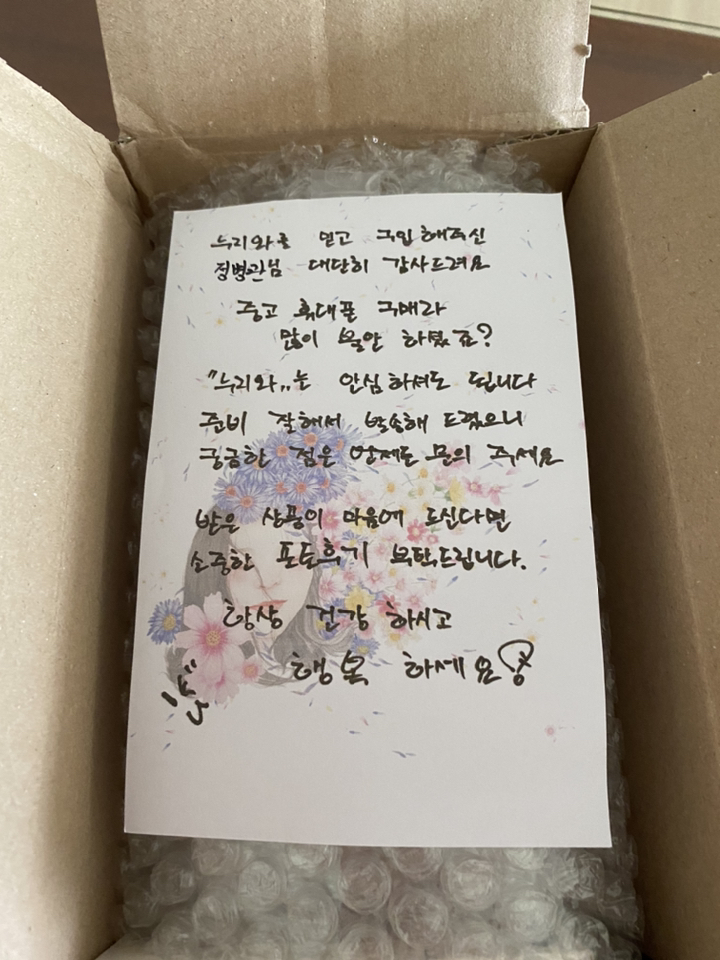 누리와를 믿고 구입해주신
정병관님 대단히 감사드려요
중고 휴대폰 구매라
많이 불안 하셨죠?
"누리와"는 안심하셔도 됩니다
준비 잘해서 발송해 드렸으니
궁금한 점은 언제든 문의 주세요
받은 상품이 마음에 드신다면
소중한 포토후기 부탁드립니다.
항상 건강 하시고
행복 하세요